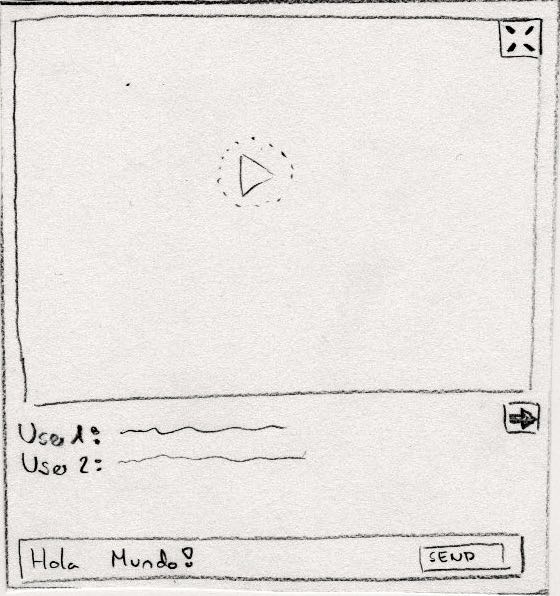 User 1:
User 2:
Hola Mundo!
SEND